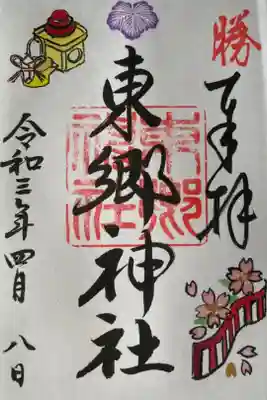 勝
奉拝
東郷神社
東郷神社
令和三年四月八日